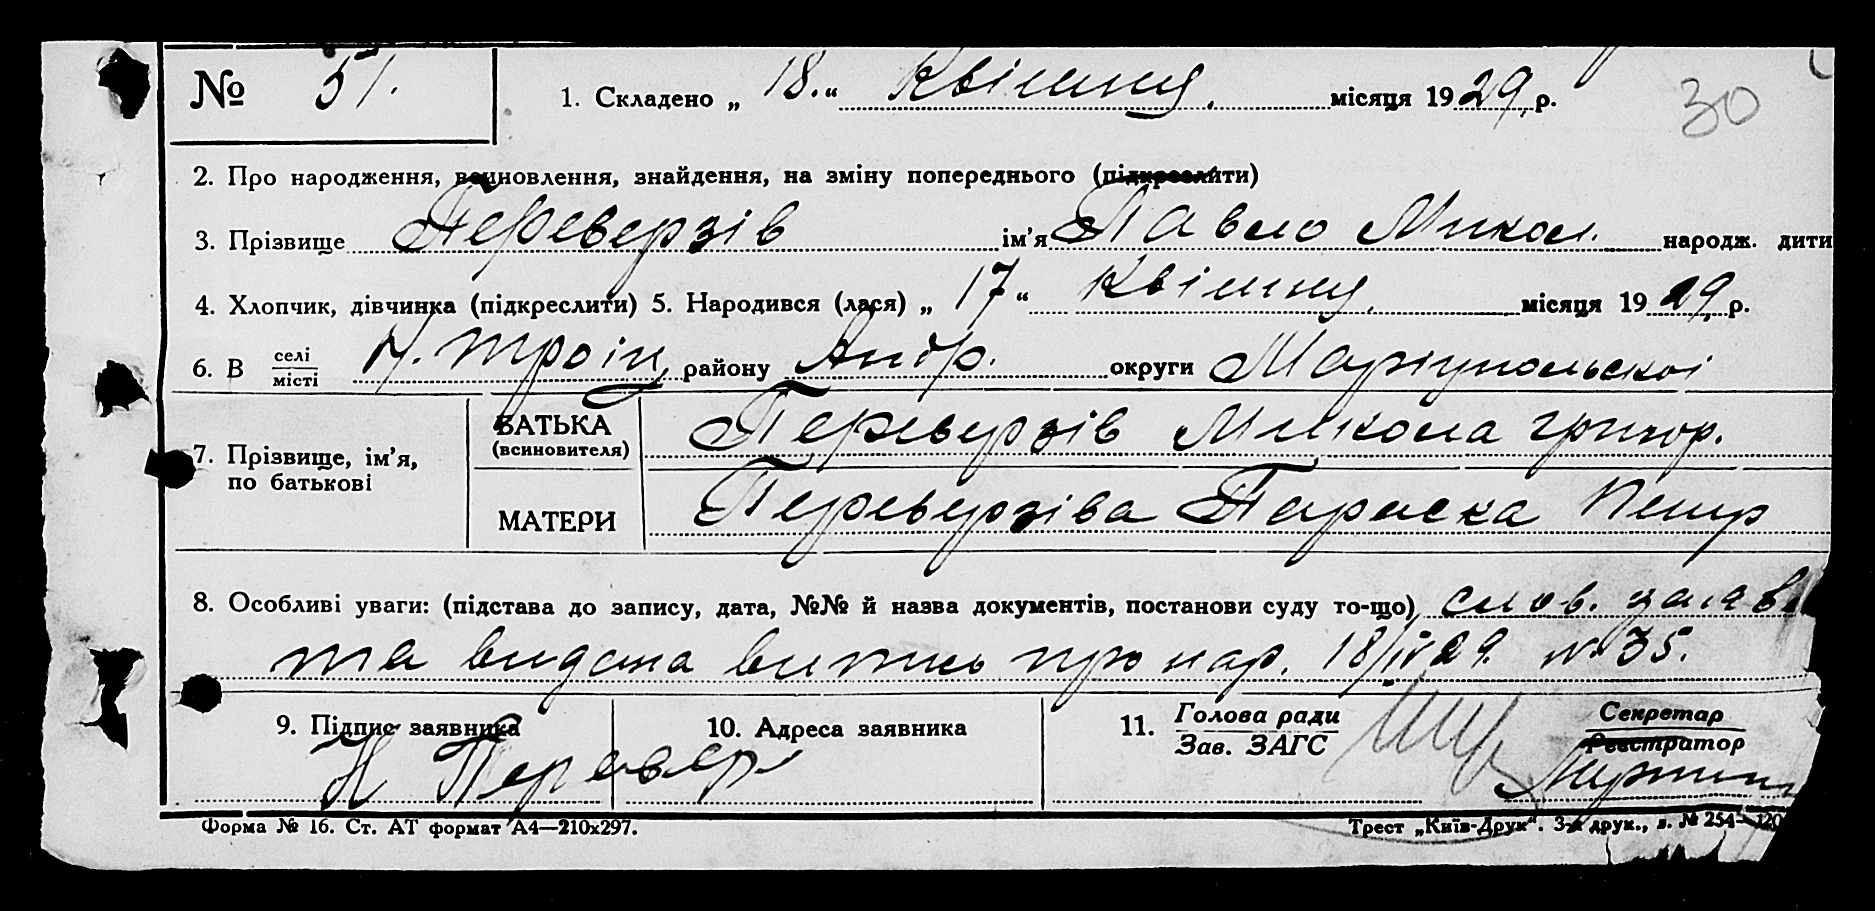 № 51. 1. Складено „ 18. “ Квітня. місяця 1929. р.
30
2. Про народження, всиновлення, знайдення, на зміну попереднього (підкреслити)
3. Прізвище Переверзів ім'я Павло Микол. народж. дити
4. Хлопчик, дівчинка (підкреслити) 5. Народився (лася) „ 17 “ Квітня. місяця 1929. р.
6. В селі/місті Н. Троїц. району Андр. округи Маріупольскої
7. Прізвище, ім'я, по батькові
БАТЬКА (всиновителя) Переверзів Микола Григор.
МАТЕРИ Переверзіва Параска Петр
8. Особливі уваги: (підстава до запису, дата, №№ й назва документів, постанови суду то-що) слов. заява
та видана випись про нар. 18/IV 29. № 35.
9. Підпис заявника 10. Адреса заявника 11. Голова ради/Зав. ЗАГС Секретар/Реєстратор
Н Перевер
Форма № 16. Ст. АТ формат А4—210х297. Трест „Київ-Друк“. 3-я друк., з. № 254—120